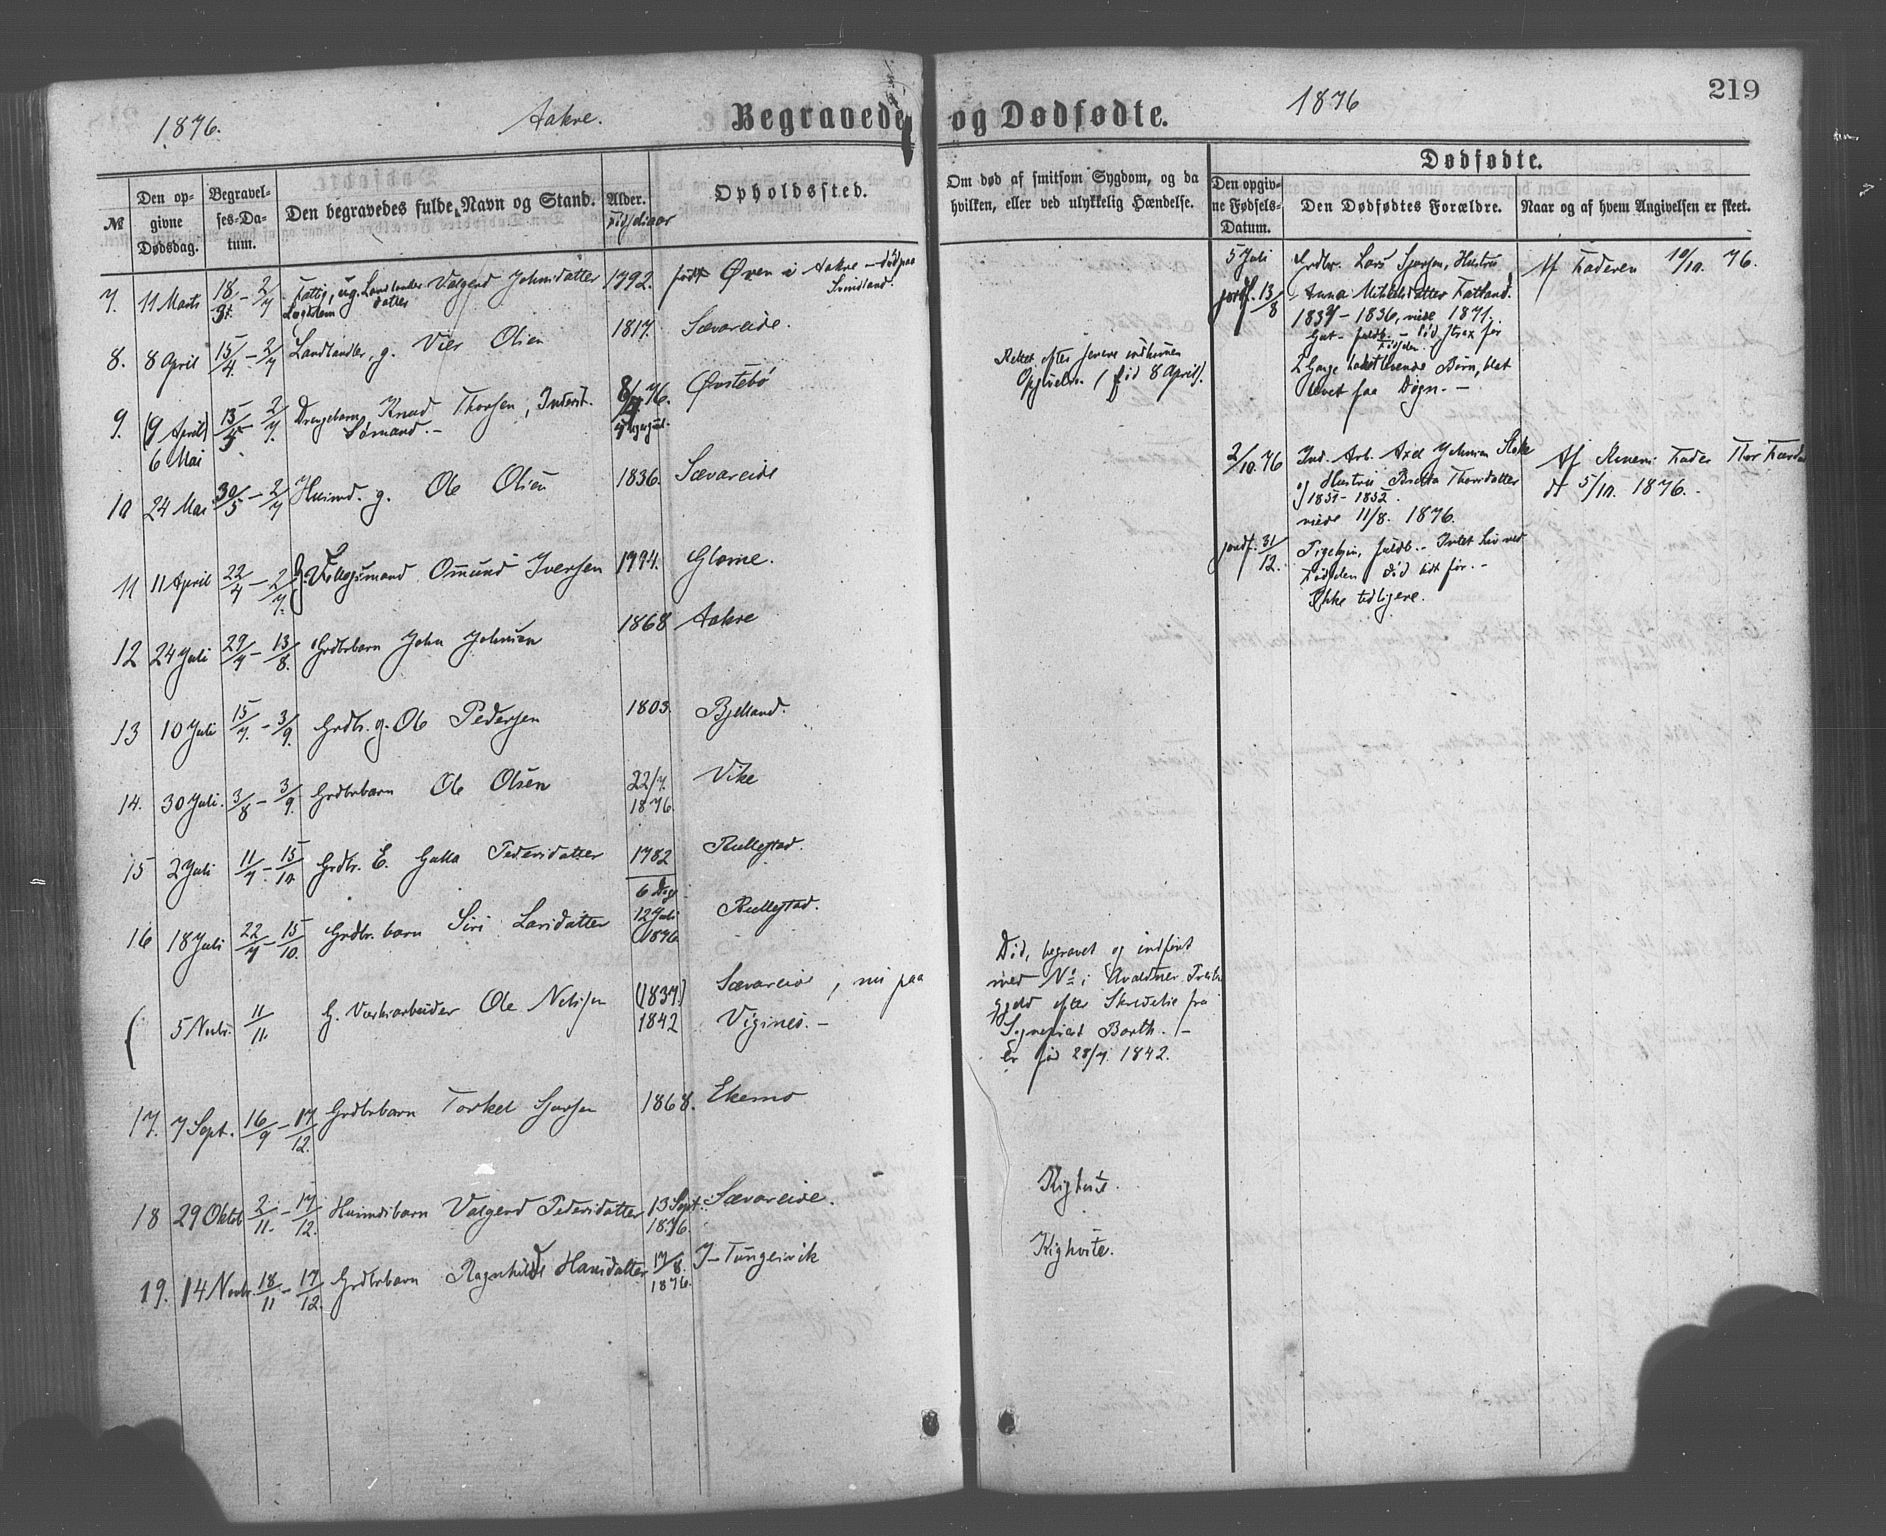 1876.
Aakre.
Begravede og Dødfødte.
1876
219
№
Den opgivne Dødsdag.
Begravelses-Datum.
Den begravedes fulde Navn og Stand.
Alder.
Fødselsaar
Opholdssted.
Om død af smitsom Sygdom, og da hvilken, eller ved ulykkelig Hændelse.
Dødfødte.
Den opgivne Fødsels-Datum.
Den Dødfødtes Forældre.
Naar og af hvem Angivelsen er skeet.
7. 11 Marts 18/3 - 2/7 Fattig, ug. Valgerd Johnsdatter 1792. født Øven i Aakre - død paa
8. 8 April 15/4 - 2/7 g. Vier Olsen 1817. Sævareide.
9. (9 April) 15/5 - 2/7 Drengebarn Knud Thorsen, Inderst. 8/4 76. Østebø
6 Mai Sømand. -
Rettet efter senere indkommen
Opgivelse (født 8 April).
10 24 Mai 30/5 - 2/7 Huusmd. g. Ole Olsen 1836. Sævareide
11 11 April 22/4 - 2/7. Omund Iversen 1794. Glome.
12 24 Juli 29/7 - 13/8. Grdbrbarn John Johnsen 1868 Aakre
13 10 Juli 15/7. - 3/9. Grdbr. g. Ole Pedersen 1803. Bjelland.
14. 30 Juli. 3/8 - 3/9. Grdbrbarn Ole Olsen 22/7. 1876. Vike
15 2 Juli 11/7. - 15/10. Grdbr. E. Gulla Pedersdatter 1782 Rullestad.
16 18 Juli 22/7 - 15/10. Grdbr. barn Siri Larsdatter 6 Dage 12 Juli 1876. Rullestad.
( 5 Novbr. 11/11. G. Værksarbeider Ole Nelssen (1837.) 1842 Sævareide, nu paa
Vigines. -
Død, begravet og indført
med № i Avaldsnes Præste
gjeld efter Skrivelse fra
Sogneprest Barth. /-
Er født 28/7. 1842.
17. 7 Sept. 16/9 - 17/12. Grdbrbarn Torkel Sjursen 1868. Ekemo
18 29 Oktob 2/11. - 17/12. Huusmdsbarn Valgerd Pedersdatter 13 Sept. 1876. Sævareide.
Kighoste.
19. 14 Novbr. 18/11 - 17/12. Grdbrbarn Ragnhilde Hansdatter 17/8. 1876. Y-Tungesvik
Kighoste.
5 Juli Grdbr. Lars Sjursen, Hustru
jordf. 13/8 Anna Mikkelsdatter Fatland.
1837 - 1836, viede 1871.
Af Faderen 10/10. 76.
fuldb. - Død strax før
Fødselen.
2 Gange levende Børn, blot
levet faa Døgn. -
2/10. 76 Ind. Arb. Axel Johnsen
og Hustru Brita Thorsdatter
1851 - 1852.
viede 11/8. 1876.
Af Konens Fader Thor
d. 5/10. 1876. -
jordf. 31/12. Pigebarn, fuldb. - Intet Liv ved
Fødselen. Død lidt før. -
Ikke tidligere.